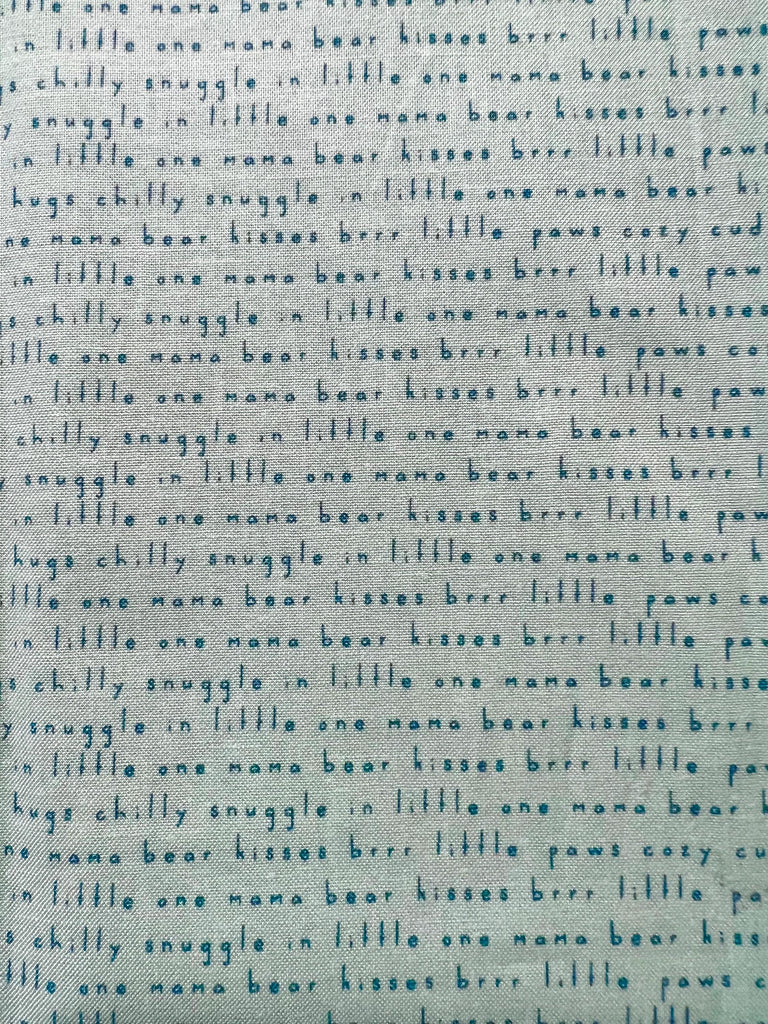 little one mama bear kisses brrr little
in little one mama bear kisses brrr little paws
s chilly snuggle in little one mama bear kisses
y snuggle in little one mama bear kisses brrr l
in little one mama bear kisses brrr little paws
hugs chilly snuggle in little one mama bear ki
ne mama bear kisses brrr little paws cozy cud
in little one mama bear kisses brrr little paw
s chilly snuggle in little one mama bear kisses
ittle one mama bear kisses brrr little paws co
in little one mama bear kisses brrr little paw
chilly snuggle in little one mama bear kisses
y snuggle in little one mama bear kisses brrr l
in little one mama bear kisses brrr little paw
hugs chilly snuggle in little one mama bear k
ittle one mama bear kisses brrr little paws co
in little one mama bear kisses brrr little paw
s chilly snuggle in little one mama bear kisse
y snuggle in little one mama bear kisses brrr
in little one mama bear kisses brrr little pa
hugs chilly snuggle in little one mama bear k
ne mama bear kisses brrr little paws cozy cu
in little one mama bear kisses brrr little pa
s chilly snuggle in little one mama bear kiss
ttle one mama bear kisses brrr little paws c